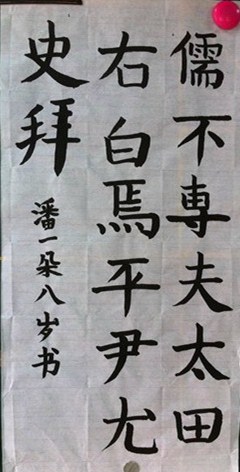 儒不専夫太田
右白焉平尹尤
史拜
潘一朵八岁书